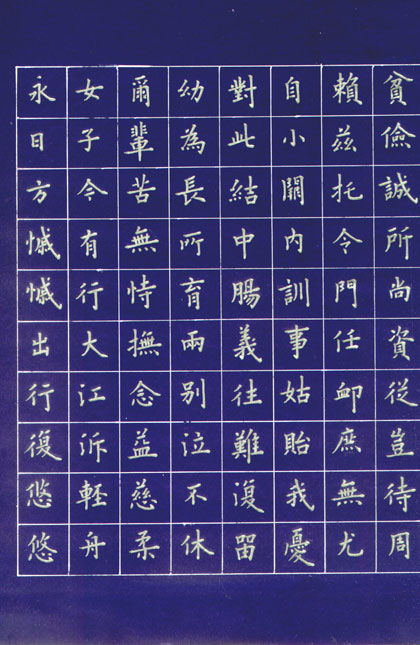 永日方慼慼出行復悠悠
女子今有行大江泝輕舟
爾輩苦無恃撫念益慈柔
幼為長所育兩別泣不休
對此結中腸義往難復留
自小闕內訓事姑貽我憂
賴茲托令門任卹庶無尤
貧儉誠所尚資從豈待周